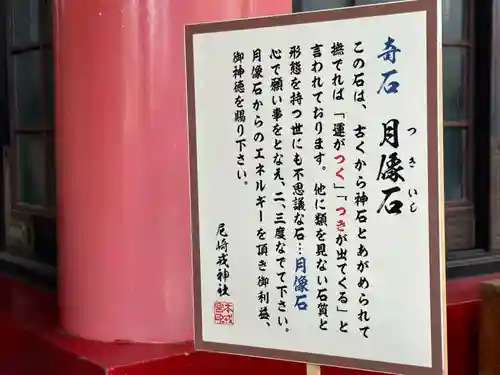 奇石 月像石
つきいし
この石は、古くから神石とあがめられて
撫でれば「運がつく」「つきが出てくる」と
言われております。他に類を見ない石質と
形態を持つ世にも不思議な石…月像石
心で願い事をとなえ、二、三度なでて下さい。
月像石からのエネルギーを頂き御利益、
御神徳を賜り下さい。
尼崎戎神社